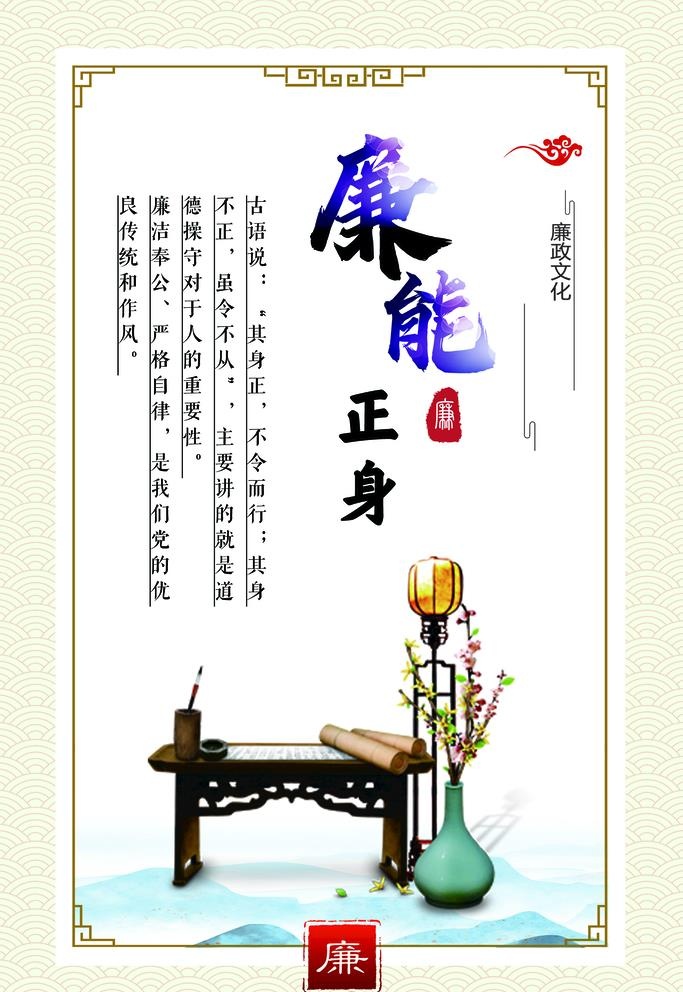 廉政文化
廉能
正身
廉
古语说：“其身正，不令而行；其身
不正，虽令不从”，主要讲的就是道
德操守对于人的重要性。
廉洁奉公、严格自律，是我们党的优
良传统和作风。
廉